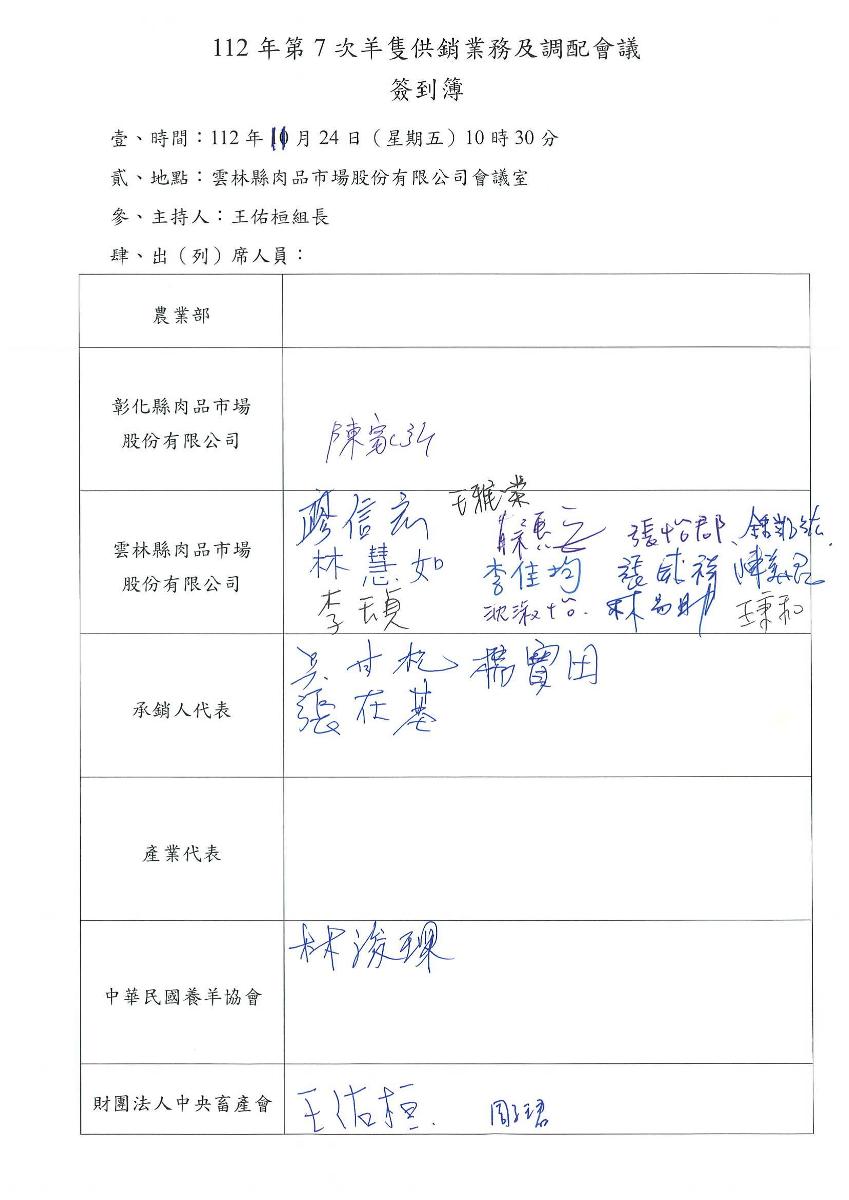 112 年第 7 次羊隻供銷業務及調配會議
簽到簿
壹、時間：112 年 11 月 24 日（星期五）10 時 30 分
貳、地點：雲林縣肉品市場股份有限公司會議室
參、主持人：王佑桓組長
肆、出（列）席人員：
農業部
彰化縣肉品市場
股份有限公司
陳富弘
王雅榮
雲林縣肉品市場
股份有限公司
廖信宏 張怡郡
林慧如 李佳均 張威祥
李瑱 沈淑怡
承銷人代表
吳甘杞 楊寶田
張在基
產業代表
中華民國養羊協會
林浚璟
財團法人中央畜產會
王佑桓